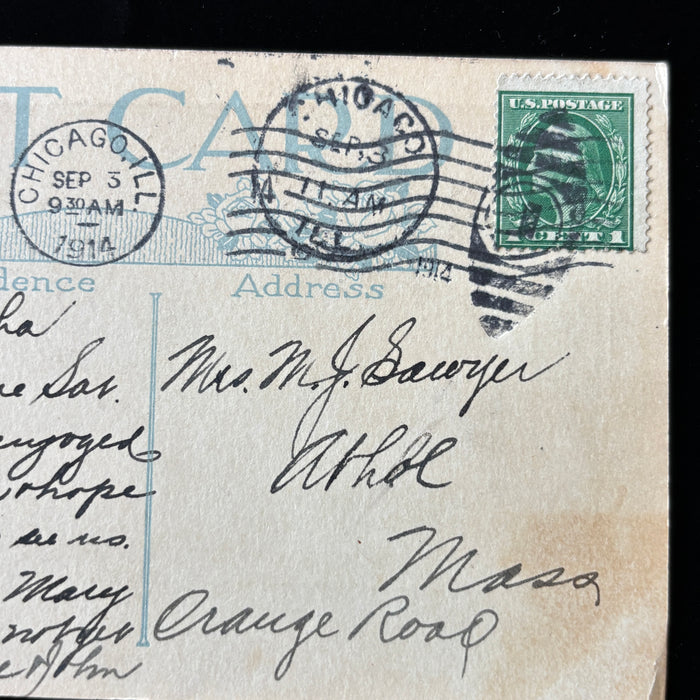 T CARD
CHICAGO, ILL.
SEP 3
9 30 AM
1914
CHICAGO
SEP. 3
11 AM
14
ILL.
1914
U.S. POSTAGE
1 CENT 1
dence
Address
ha
e Sat.
enjoyed
hope
see us.
Mary
John
Mrs. M. J. Sawyer
Athol
Mass
Orange Road